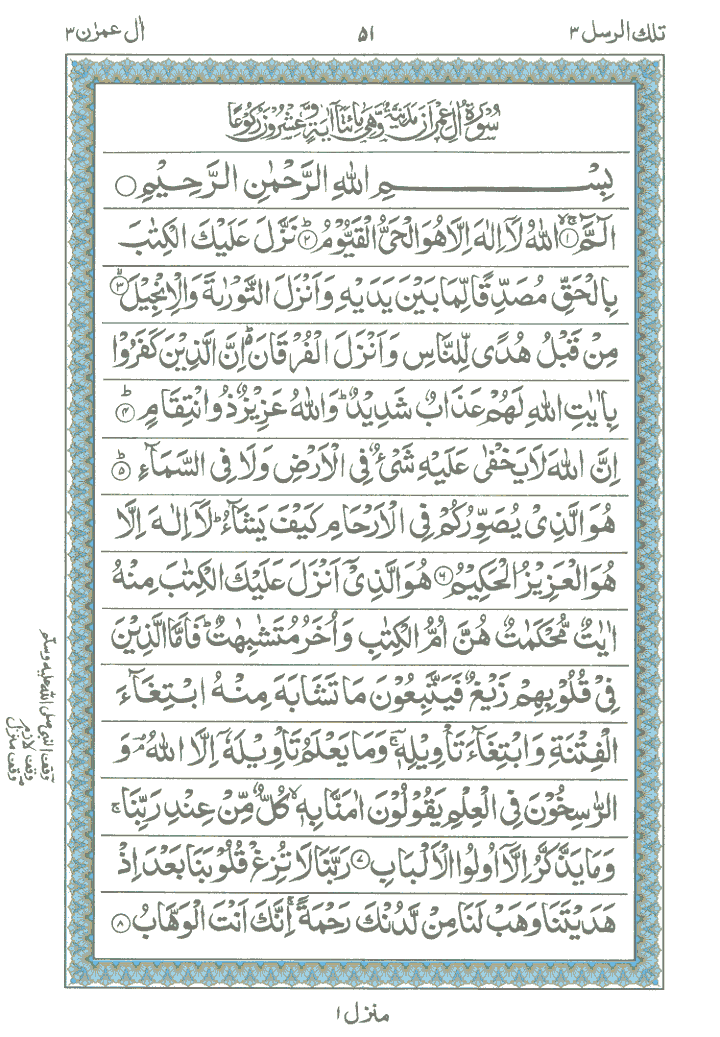 تلك الرسل ٣
٥١
اٰل عمرٰن ٣
سُوْرَةُ اٰلِ عِمْرَانَ مَدَنِيَّةٌ وَّهِيَ مِائَتَا اٰيَةٍ وَّعِشْرُوْنَ رُكُوْعًا
بِسْمِ اللّٰهِ الرَّحْمٰنِ الرَّحِيْمِ ○
الٓمَّٓ ۙ﴿١﴾ اللّٰهُ لَآ اِلٰهَ اِلَّا هُوَ الْحَيُّ الْقَيُّوْمُ ؕ﴿٢﴾ نَزَّلَ عَلَيْكَ الْكِتٰبَ
بِالْحَقِّ مُصَدِّقًا لِّمَا بَيْنَ يَدَيْهِ وَاَنْزَلَ التَّوْرٰىةَ وَالْاِنْجِيْلَ ۙ﴿٣﴾
مِنْ قَبْلُ هُدًى لِّلنَّاسِ وَاَنْزَلَ الْفُرْقَانَ ؕ اِنَّ الَّذِيْنَ كَفَرُوْا
بِاٰيٰتِ اللّٰهِ لَهُمْ عَذَابٌ شَدِيْدٌ ؕ وَاللّٰهُ عَزِيْزٌ ذُو انْتِقَامٍ ؕ﴿٤﴾
اِنَّ اللّٰهَ لَا يَخْفٰى عَلَيْهِ شَيْءٌ فِي الْاَرْضِ وَلَا فِي السَّمَآءِ ؕ﴿٥﴾
هُوَ الَّذِيْ يُصَوِّرُكُمْ فِي الْاَرْحَامِ كَيْفَ يَشَآءُ ؕ لَآ اِلٰهَ اِلَّا
هُوَ الْعَزِيْزُ الْحَكِيْمُ ﴿٦﴾ هُوَ الَّذِيْٓ اَنْزَلَ عَلَيْكَ الْكِتٰبَ مِنْهُ
اٰيٰتٌ مُّحْكَمٰتٌ هُنَّ اُمُّ الْكِتٰبِ وَاُخَرُ مُتَشٰبِهٰتٌ ؕ فَاَمَّا الَّذِيْنَ
فِيْ قُلُوْبِهِمْ زَيْغٌ فَيَتَّبِعُوْنَ مَا تَشَابَهَ مِنْهُ ابْتِغَآءَ
الْفِتْنَةِ وَابْتِغَآءَ تَاْوِيْلِهٖ ۚ وَمَا يَعْلَمُ تَاْوِيْلَهٗٓ اِلَّا اللّٰهُ ۘ وَ
الرّٰسِخُوْنَ فِي الْعِلْمِ يَقُوْلُوْنَ اٰمَنَّا بِهٖ ۙ كُلٌّ مِّنْ عِنْدِ رَبِّنَا ۚ
وَمَا يَذَّكَّرُ اِلَّآ اُولُوا الْاَلْبَابِ ﴿٧﴾ رَبَّنَا لَا تُزِغْ قُلُوْبَنَا بَعْدَ اِذْ
هَدَيْتَنَا وَهَبْ لَنَا مِنْ لَّدُنْكَ رَحْمَةً ۚ اِنَّكَ اَنْتَ الْوَهَّابُ ﴿٨﴾
وقف النبى صلى الله عليه وسلم
وقف لازم
وقف منزل
منزل ١